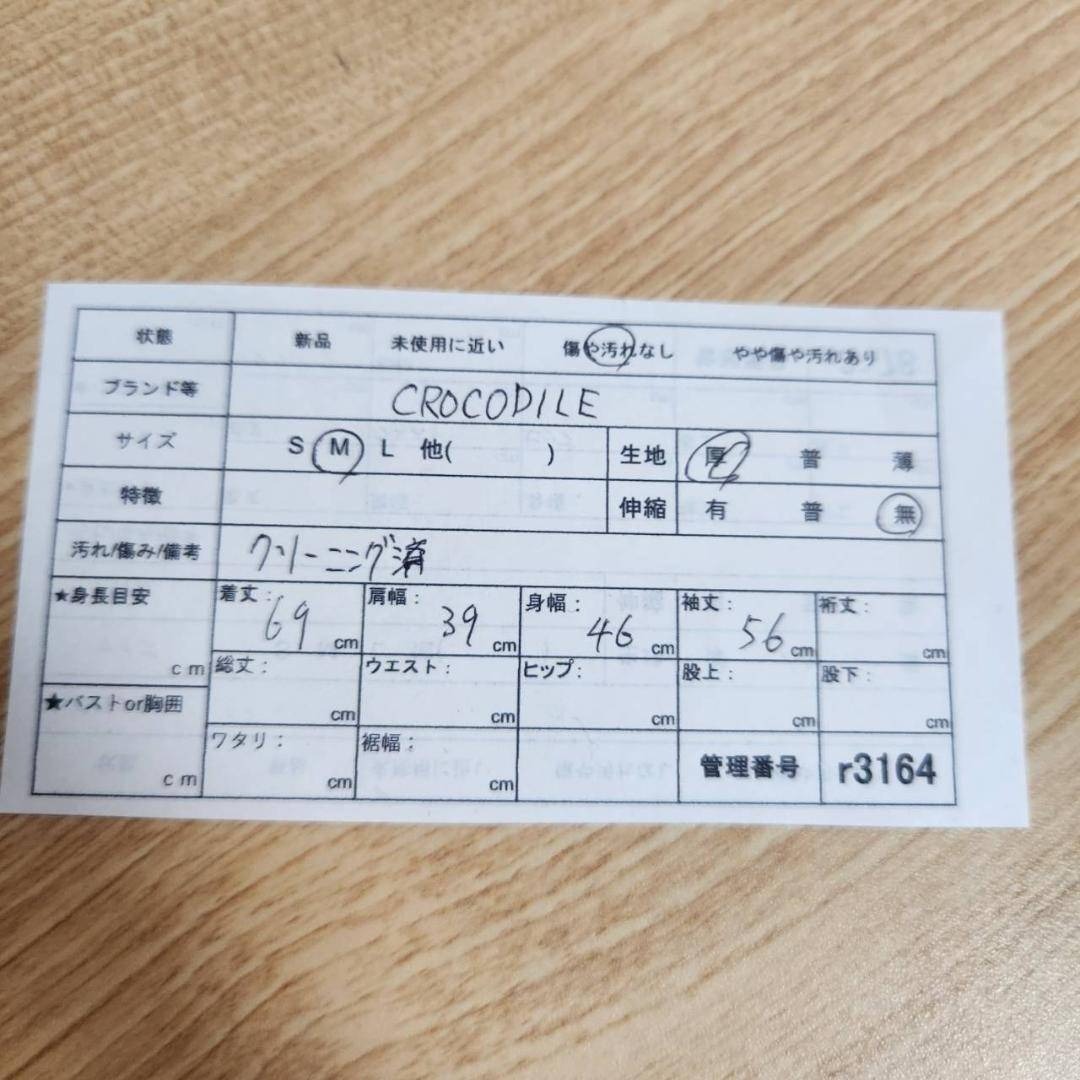 状態 新品 未使用に近い 傷や汚れなし やや傷や汚れあり
ブランド等 CROCODILE
サイズ S M L 他( ) 生地 厚 普 薄
特徴 伸縮 有 普 無
汚れ/傷み/備考 クリーニング済
★身長目安 着丈: 69 cm 肩幅: 39 cm 身幅: 46 cm 袖丈: 56 cm 裄丈: cm
cm 総丈: cm ウエスト: cm ヒップ: cm 股上: cm 股下: cm
★バストor胸囲
cm ワタリ: cm 裾幅: cm 管理番号 r3164